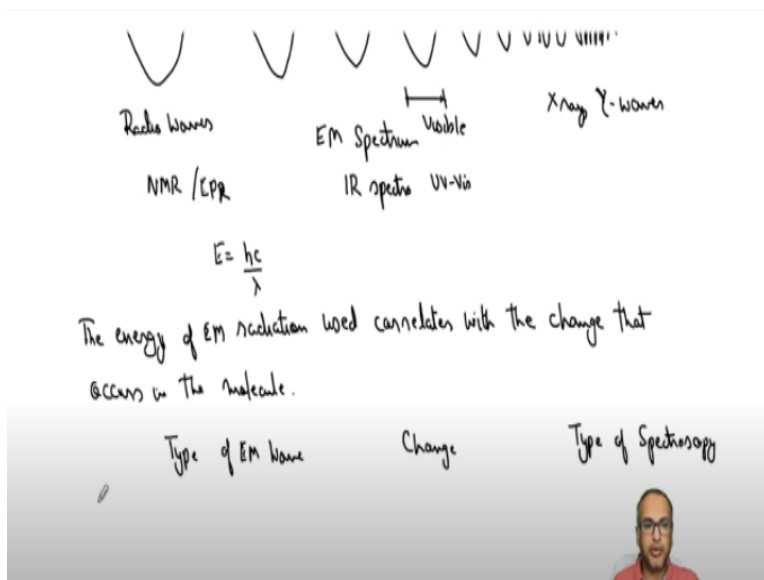 Radio Waves
EM Spectrum
Visible
X ray γ-waves
NMR / EPR
IR spectro UV-Vis
E = hc
λ
The energy of EM radiation used correlates with the change that
occurs in the molecule.
Type of EM Wave
Change
Type of Spectroscopy